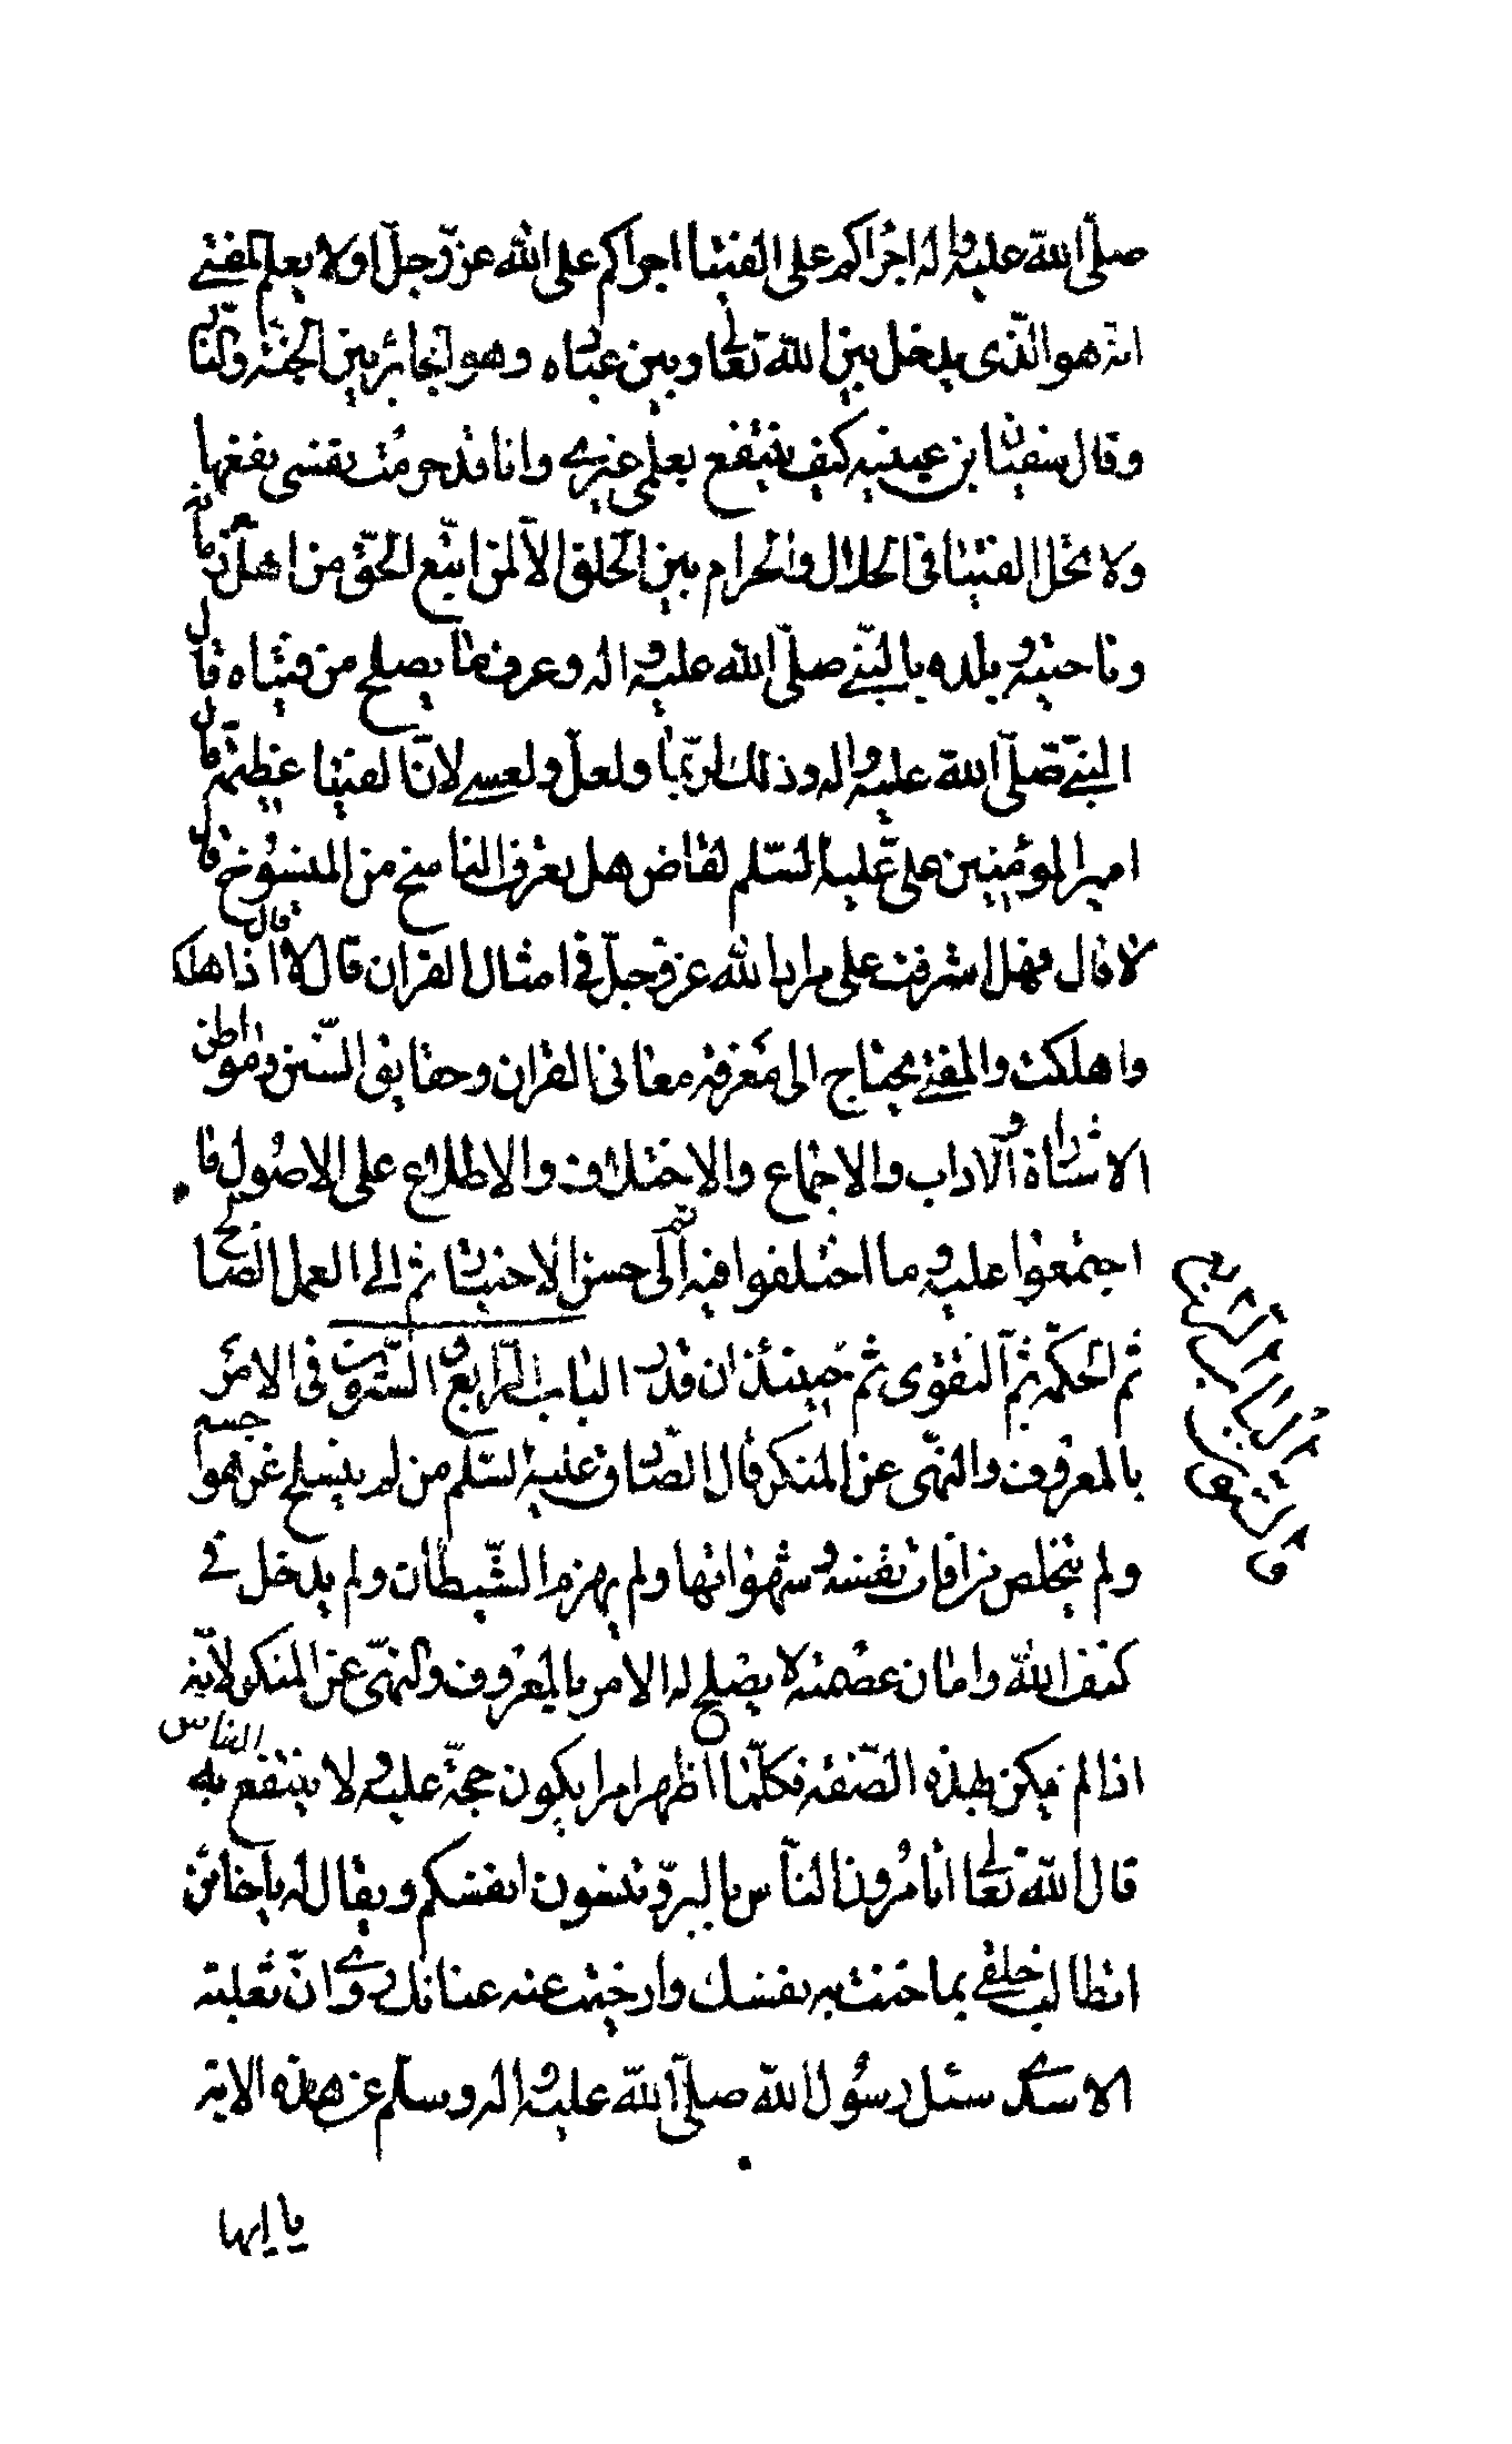 صلّى الله عليه واله اجراكم على الفتيا اجراكم على الله عزّ وجلّ اولا يعلم المفتى
انه هو الّذى يدخل بين الله تعالى وبين عباده وهو الجائر بين الجنّة والنّار
وقال سفيان بن عيينه كيف ينتفع بعلمى غيرى وانا قد حرمت نفسى نفعها
ولا تحل الفتيا فى الحلال والحرام بين الخلق الّا لمن اتبع الحقّ من اهل زمانه
وناحيته وبلده بالنبّى صلّى الله عليه واله وعرف ما يصلح من فتياه قال
النبّى صلّى الله عليه واله وذلك لربّما ولعلّ ولعسى لانّ الفتيا عظيمة قال
امير المؤمنين علىّ عليه السّلم لقاض هل تعرف الناسخ من المنسوخ قال
لا قال فهل اشرفت على مراد الله عز وجلّ فى امثال القران قال لا قال اذا هلكت
واهلكت والمفتى يحتاج الى معرفة معانى القران وحقايق السّنن وبواطن
الاشارات والاداب والاجماع والاختلاف والاطلاع على الاصول ما
اجتمعوا عليه وما اختلفوا فيه ثمّ الى حسن الاختيار ثم الى العمل الصّالح
ثم الحكمة ثمّ التقوى ثم حينئذ ان قدر الباب الرّابع والسّتون فى الامر
بالمعروف والنّهى عن المنكر قال الصّادق عليه السّلم من لم ينسلخ عن هواجسه
ولم يتخلص من افات نفسه وشهواتها ولم يهزم الشّيطان ولم يدخل فى
كنف الله وامان عصمته لا يصلح له الامر بالمعروف والنهّى عن المنكر لانّه
اذا لم يكن بهذه الصّفة فكلّما اظهر امرا يكون حجّة عليه ولا ينتفع الناس به
قال الله تعالى اتامرون النّاس بالبرّ وتنسون انفسكم ويقال له يا خائن
اتطالب خلقى بما خنت به نفسك وارخيت عنه عنانك روى انّ ثعلبة
الاسدى سئل رسول الله صلّى الله عليه واله وسلّم عن هذه الاية
يا ايها
الباب الرابع
والستون